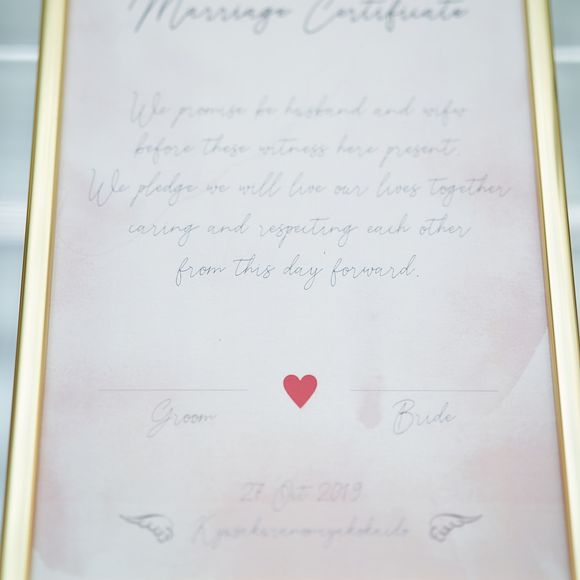 Marriage Certificate
We promise be husband and wife
before these witness here present.
We pledge we will live our lives together
caring and respecting each other
from this day forward.
Groom
Bride
27 Oct 2019